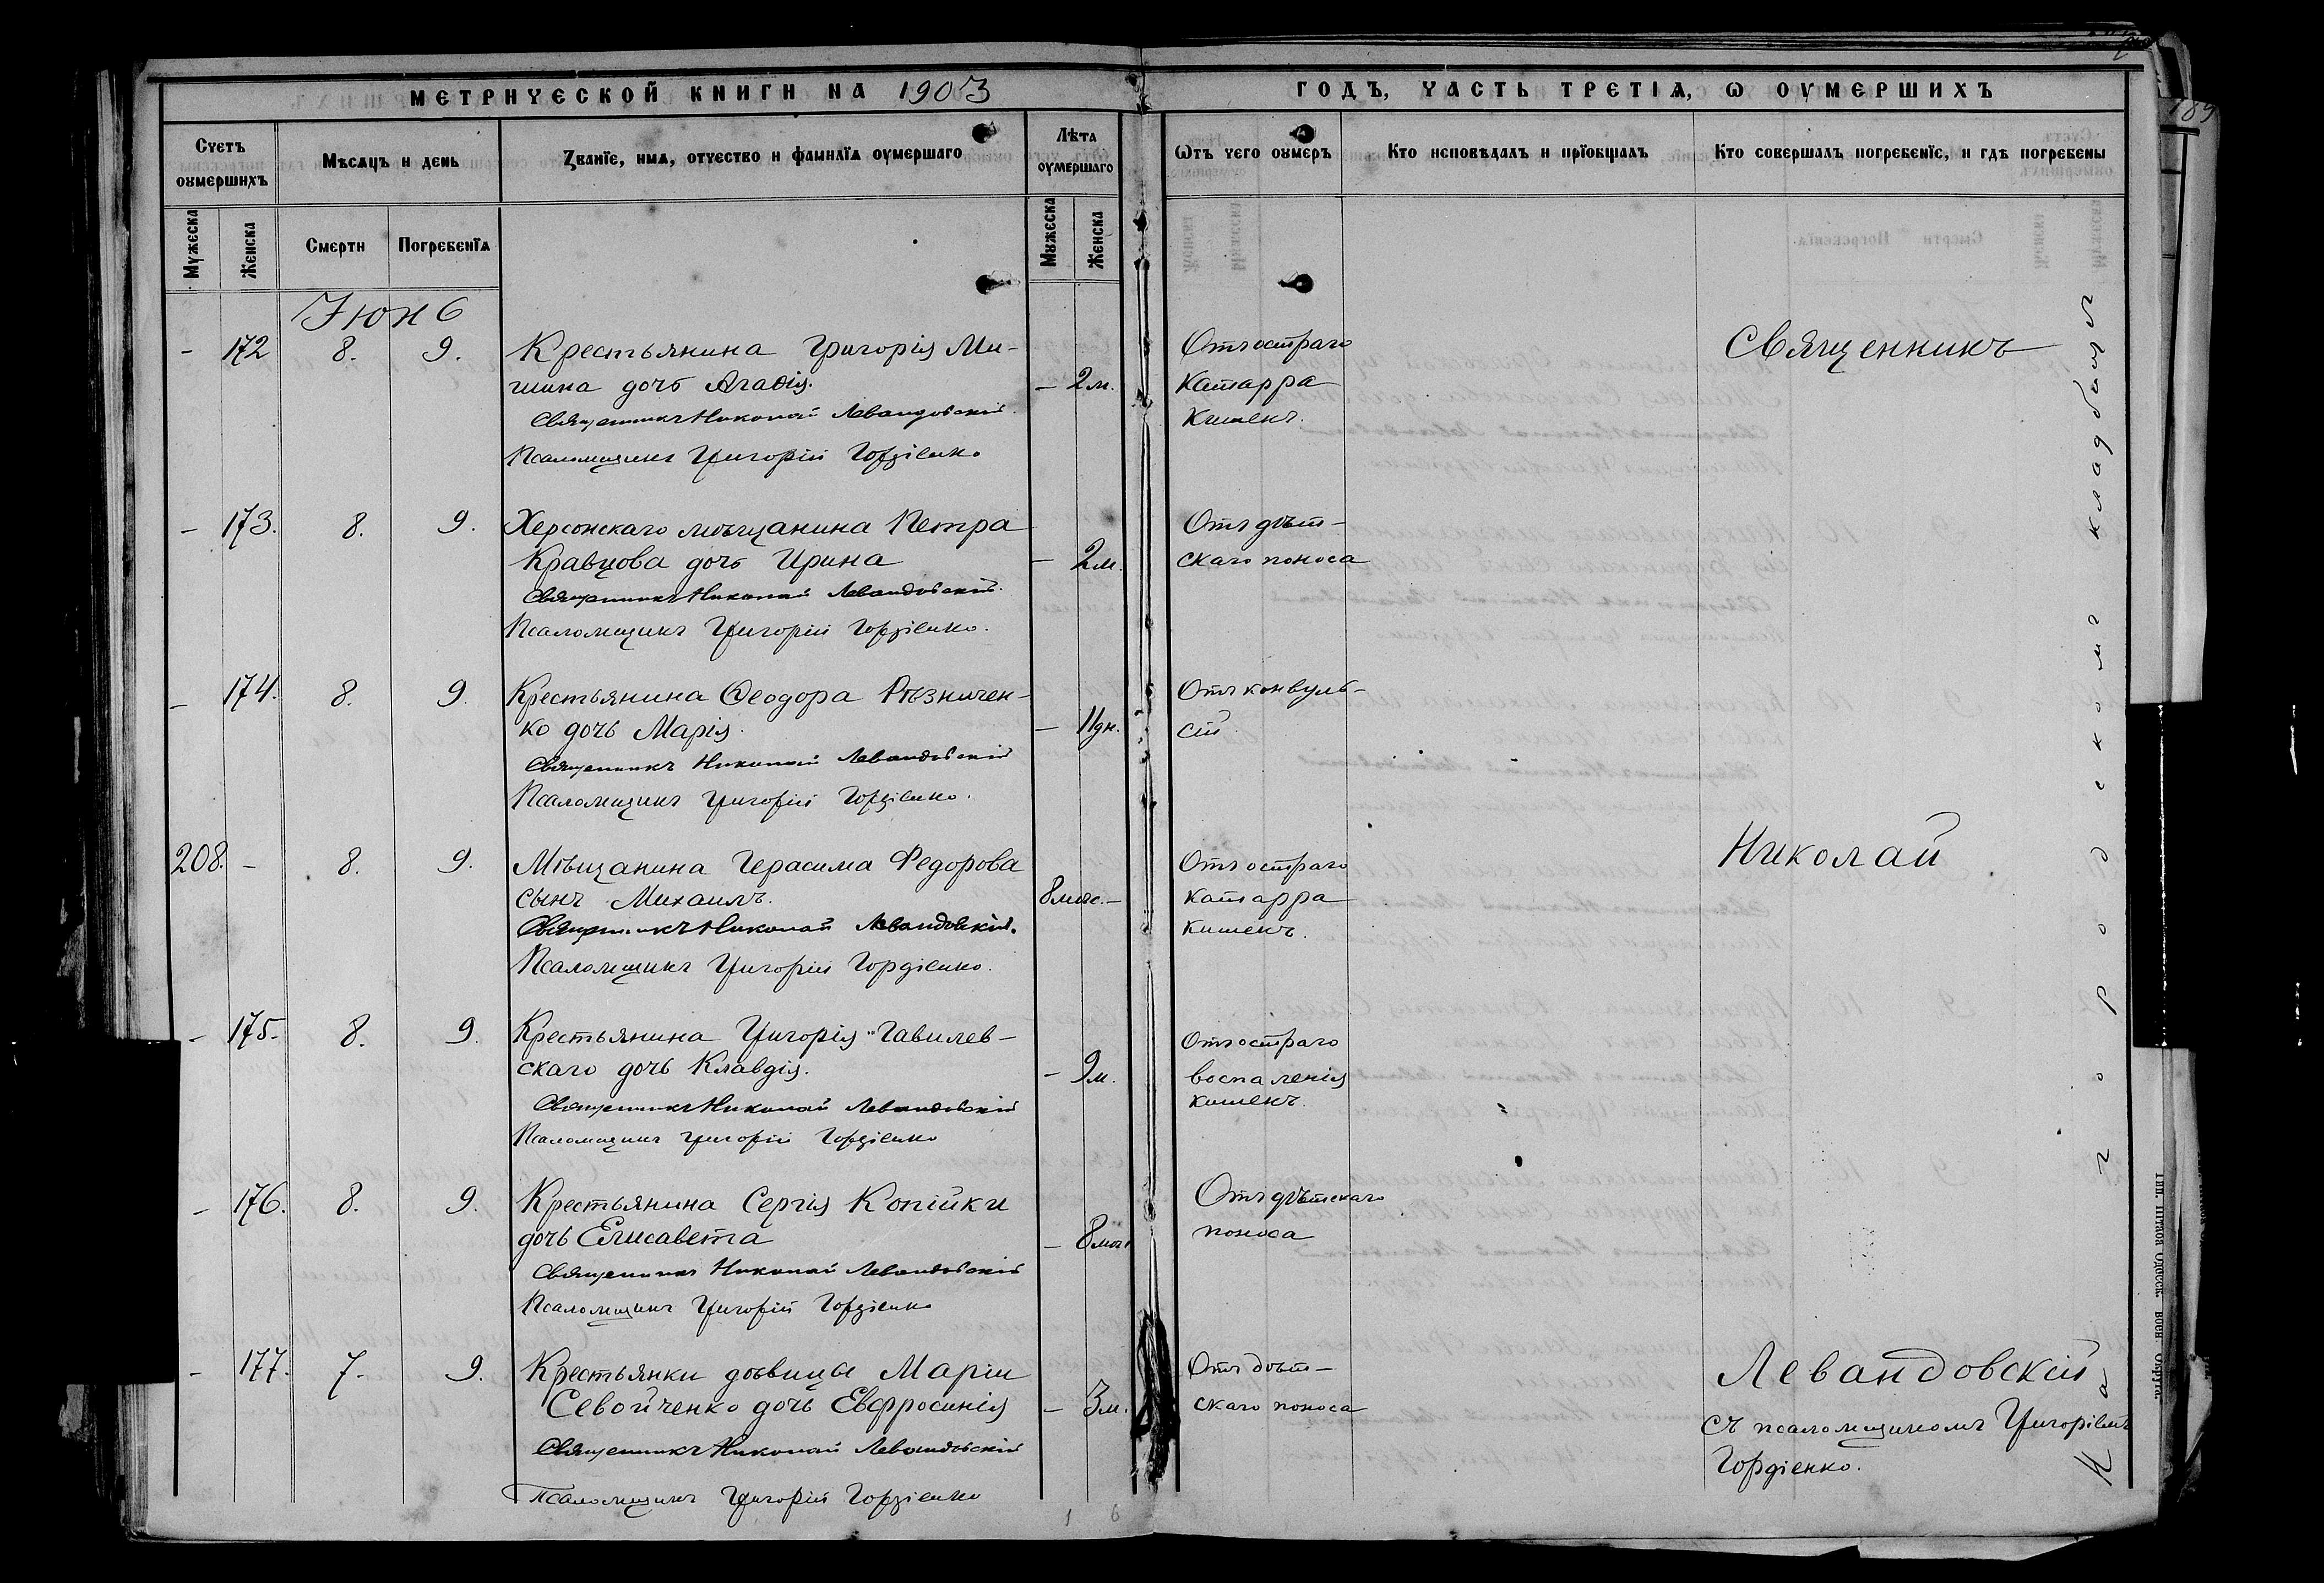 МЕТРИЧЕСКОЙ КНИГИ НА 1903
ГОДЪ, ЧАСТЬ ТРЕТІѦ, Ѡ ОУМЕРШИХЪ
Счетъ оумершихъ
Мѣсѧцъ и день
Званїе, имѧ, отчество и фамилїѧ оумершаго
Лѣта оумершаго
Ѿтъ чего оумеръ
Кто исповѣдалъ и прїобщалъ
Кто совершалъ погребенїе, и гдѣ погребены
Мужеска
Женска
Смерти
Погребенїѧ
Мужеска
Женска
Іюнь
– 172 8. 9. Крестьянина Григорія Ми-
шина дочь Агаѳія. – 2 м.
Священникъ Николай Левандовскій.
Псаломщикъ Григорій Гордіенко
Отъ остраго
катарра
кишекъ.
– 173. 8. 9. Херсонскаго мѣщанина Петра
Кравцова дочь Ирина – 2 м.
Священникъ Николай Левандовскій.
Псаломщикъ Григорій Гордіенко.
Отъ дѣт-
скаго поноса
– 174. 8. 9. Крестьянина Ѳеодора Рѣзничен-
ко дочь Марія. – 11 дн.
Священникъ Николай Левандовскій
Псаломщикъ Григорій Гордіенко.
Отъ конвуль-
сій
208. – 8. 9. Мѣщанина Герасима Федорова
сынъ Михаилъ. 8 мѣс. –
Священникъ Николай Левандовскій.
Псаломщикъ Григорій Гордіенко.
Отъ остраго
катарра
кишекъ.
– 175. 8. 9. Крестьянина Григорія Гавилев-
скаго дочь Клавдія. – 9 м.
Священникъ Николай Левандовскій
Псаломщикъ Григорій Гордіенко
Отъ остраго
воспаленія
кишекъ.
– 176. 8. 9. Крестьянина Сергія Копійки
дочь Елисавета – 8 мѣс
Священникъ Николай Левандовскій
Псаломщикъ Григорій Гордіенко
Отъ дѣтскаго
поноса
– 177. 7. 9. Крестьянки дѣвицы Маріи
Севойченко дочь Евфросинія – 3 м.
Священникъ Николай Левандовскій
Псаломщикъ Григорій Гордіенко
Отъ дѣт-
скаго поноса
Священникъ
Николай
Левандовскій
съ псаломщикомъ Григоріемъ
Гордіенко.
На городскомъ кладбищѣ
189
Тип. Штаба Одесск. воен. Округа.